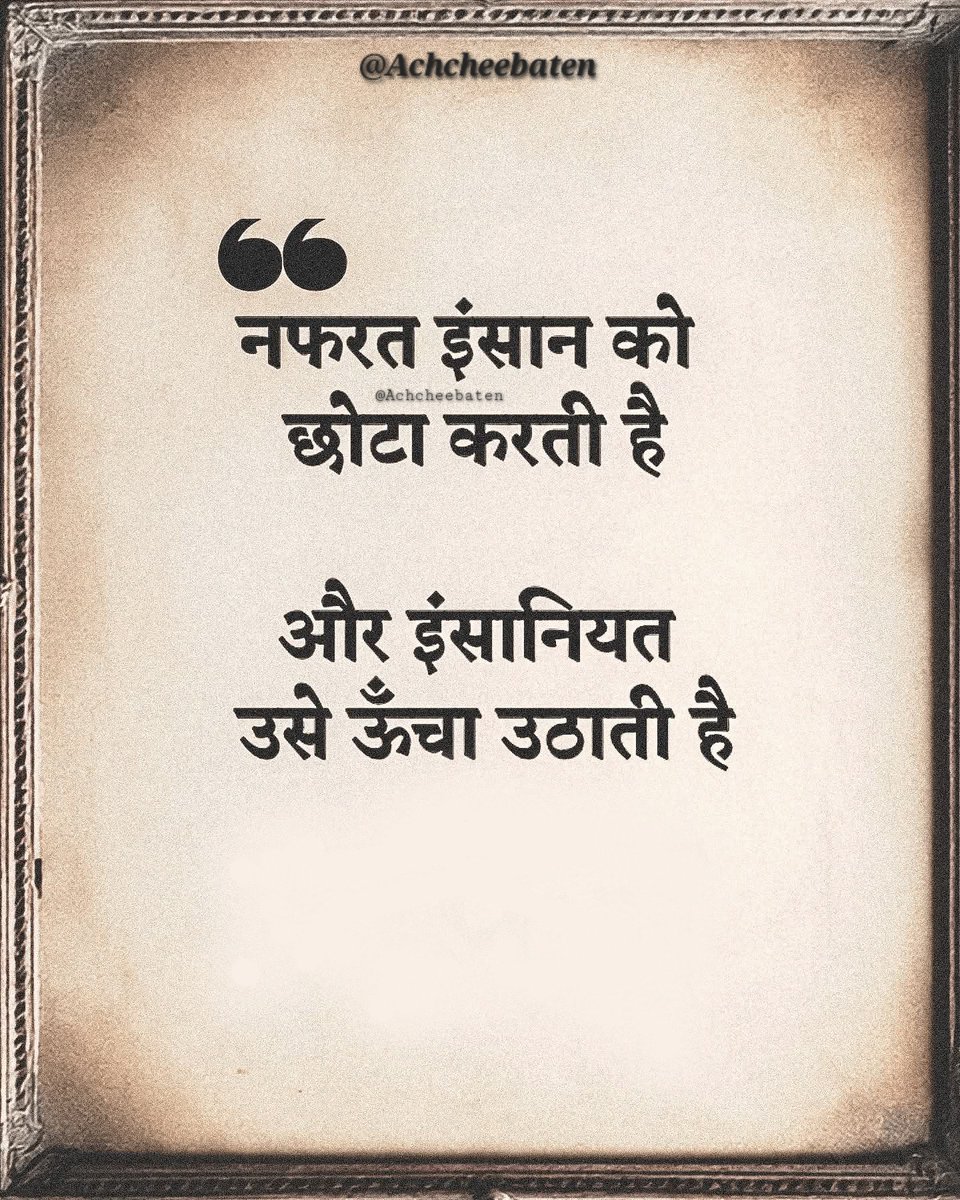 @Achcheebaten
❝
नफरत इंसान को
@Achcheebaten
छोटा करती है
और इंसानियत
उसे ऊँचा उठाती है